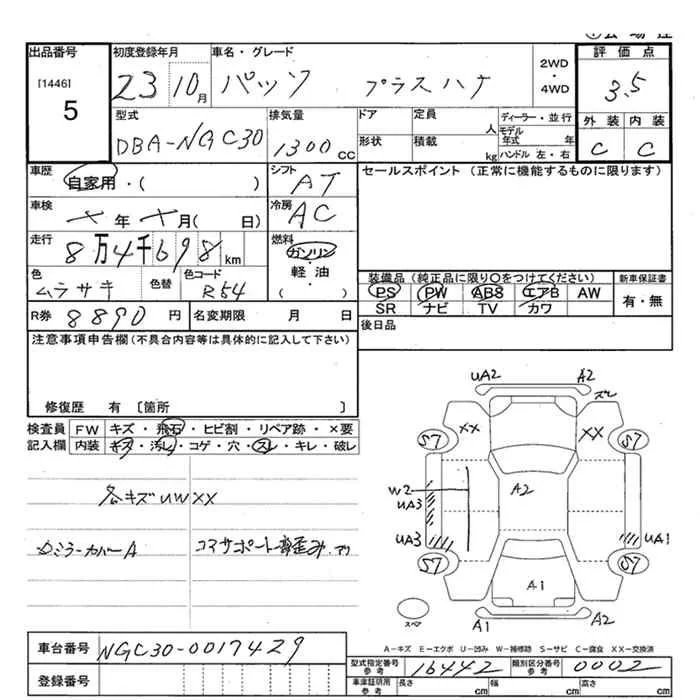 出品番号 初度登録年月 車名・グレード 評価点
[1446] 5 23 10月 パッソ プラスハナ 2WD・4WD 3.5
型式 排気量 ドア 定員 人 ディーラー・並行 外装 内装
DBA-NGC30 1300 CC 形状 積載 kg モデル年式 年 ハンドル 左・右 C C
車歴 自家用・( ) シフト AT セールスポイント (正常に機能するものに限ります)
車検 メ年メ月( 日) 冷房 AC
走行 8万4千698km 燃料 ガソリン・軽油・( )
色 ムラサキ 色替 色コード R54 装備品 (純正品に限り○をつけてください) 新車保証書
PS PW ABS エアB AW 有・無
SR ナビ TV カワ
R券 8890円 名変期限 月 日 後日品
注意事項申告欄(不具合内容等は具体的に記入して下さい)
修復歴 有 [箇所 ]
検査員 FW キズ・飛石・ヒビ割・リペア跡・×要
記入欄 内装 キズ・汚レ・コゲ・穴・スレ・キレ・破レ
各キズUWXX
カミラーカバーA コアサポート 歪み アリ
UA2 A2
ズレ
XX XX
S7 S7
W2 A2
UA3
UA3 UA1
S7 S7
A1
スペア A1 A2
A-キズ E-エクボ U-凹み W-補修跡 S-サビ C-腐食 XX-交換済
車台番号 NGC30-0017429
型式指定番号 参考 16442 類別区分番号 参考 0002
登録番号 車庫証明用 参考 長さ cm 幅 cm 高さ cm